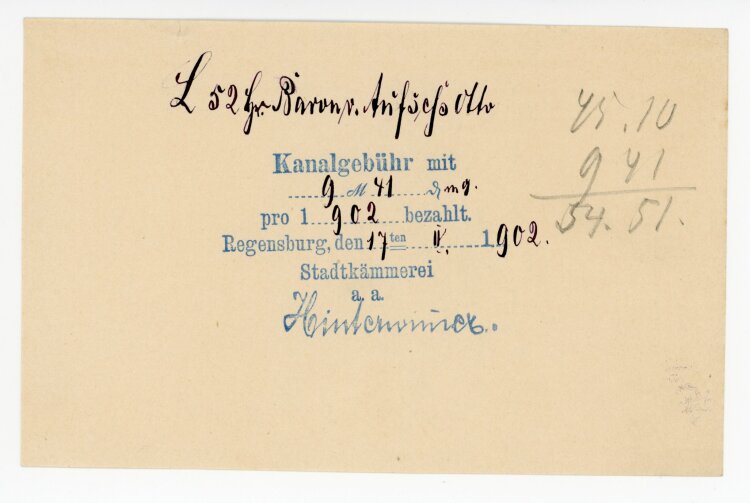 L 52 Hr. Baron v. Aufseß Otto
45.10
9 41
54.51.
Kanalgebühr mit
9 M 41 ₰ m g.
pro 1902 bezahlt.
Regensburg, den 17ten IV. 1902.
Stadtkämmerei
a. a.
Hinterwinner.